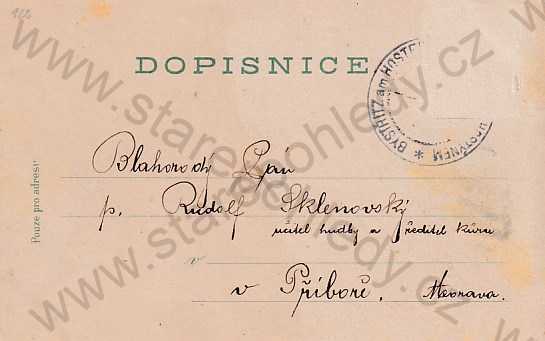 162
DOPISNICE
BYSTRITZ am HOSTE
HOSTÝNEM *
Pouze pro adresu
Blahorodý Pán
p. Rudolf Sklenovský
učitel hudby a ředitel kůru
v Příboře, Morava.
www.starepohledy.cz